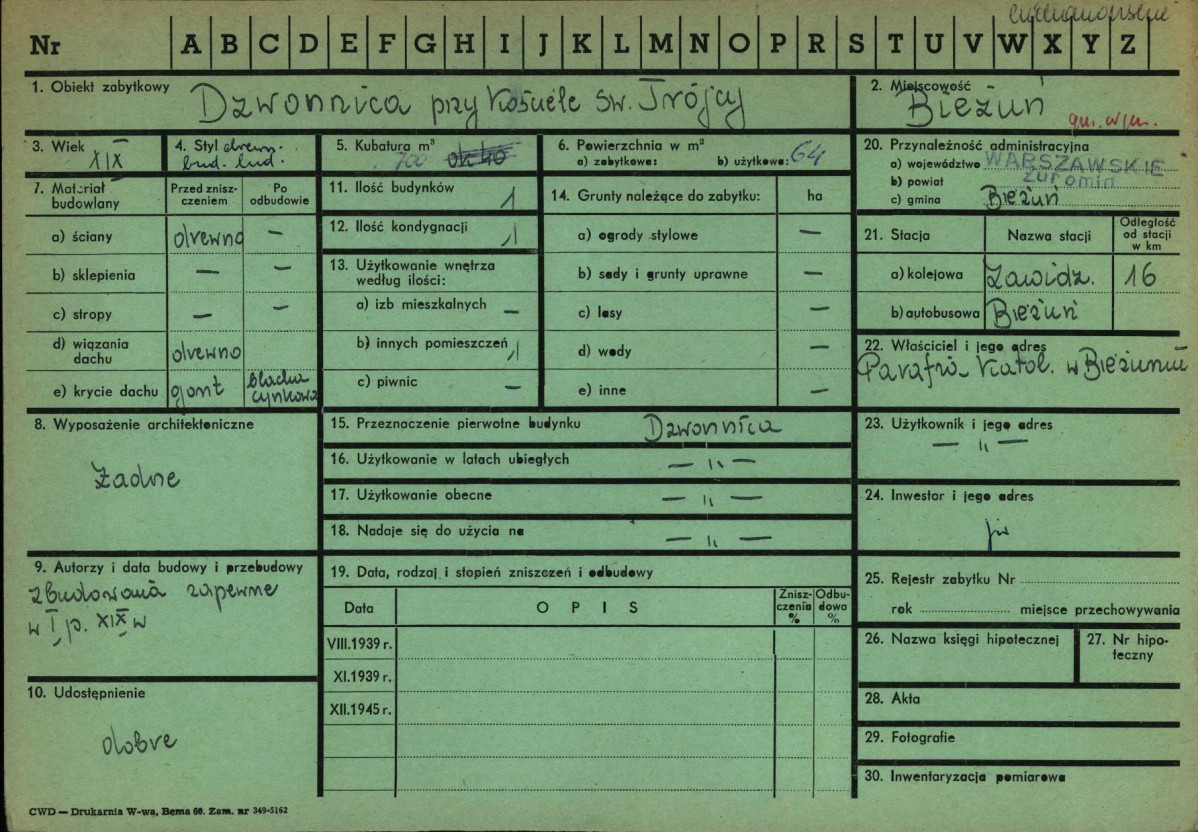 Nr A B C D E F G H I J K L M N O P R S T U V W X Y Z
1. Obiekt zabytkowy Dzwonnica przy kościele św. Trójcy
2. Miejscowość
Bieżuń
3. Wiek
XIX
4. Styl drewn.
bud. lud.
5. Kubatura m³
700
6. Powierzchnia w m²
a) zabytkowa: b) użytkowa: 64
20. Przynależność administracyjna
a) województwo WARSZAWSKIE
b) powiat żuromin
c) gmina Bieżuń
7. Materiał budowlany
Przed zniszczeniem
Po odbudowie
a) ściany drewno —
b) sklepienia — —
c) stropy — —
d) wiązania dachu drewno
e) krycie dachu gont blacha cynkowa
11. Ilość budynków 1
12. Ilość kondygnacji 1
13. Użytkowanie wnętrza
według ilości:
a) izb mieszkalnych —
b) innych pomieszczeń 1
c) piwnic —
14. Grunty należące do zabytku: ha
a) ogrody stylowe —
b) sady i grunty uprawne —
c) lasy —
d) wody —
e) inne —
21. Stacja Nazwa stacji Odległość od stacji w km
a) kolejowa Zawidz. 16
b) autobusowa Bieżuń
22. Właściciel i jego adres
Parafia Katol. w Bieżuniu
8. Wyposażenie architektoniczne
żadne
15. Przeznaczenie pierwotne budynku Dzwonnica
16. Użytkowanie w latach ubiegłych — „ —
17. Użytkowanie obecne — „ —
18. Nadaje się do użycia na — „ —
23. Użytkownik i jego adres
— „ —
24. Inwestor i jego adres
9. Autorzy i data budowy i przebudowy
zbudowana zapewne
w I p. XIX w
19. Data, rodzaj i stopień zniszczeń i odbudowy
Data O P I S Zniszczenia % Odbudowa %
VIII.1939 r.
XI.1939 r.
XII.1945 r.
25. Rejestr zabytku Nr
rok miejsce przechowywania
26. Nazwa księgi hipotecznej
27. Nr hipoteczny
28. Akta
29. Fotografie
30. Inwentaryzacja pomiarowa
10. Udostępnienie
dobre
CWD — Drukarnia W-wa, Bema 60. Zam. nr 349-5162